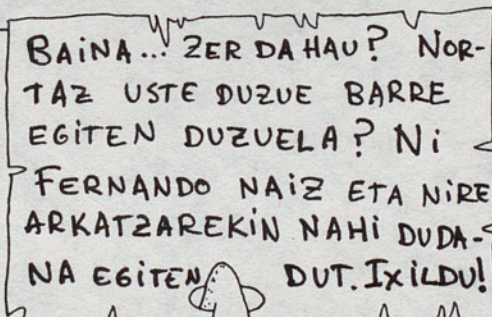 BAiNA... ZER DA HAU? NOR-
TAZ USTE DUZUE BARRE
EGiTEN DUZUELA? Ni
FERNANDO NAiZ ETA NiRE
ARKATZAREKiN NAHi DUDA-
NA EGiTEN DUT. IXiLDU!